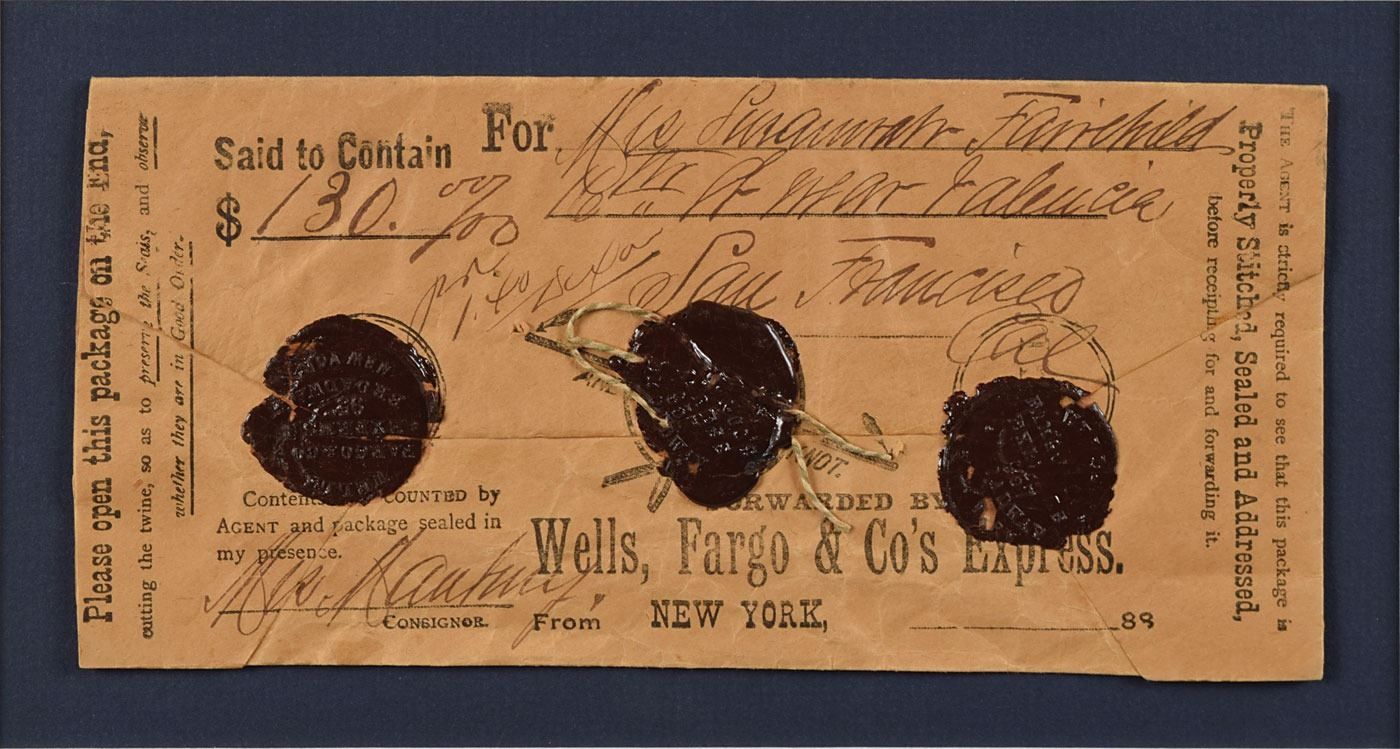 Please open this package on the End,
cutting the twine, so as to preserve the Seals, and observe
whether they are in Good Order.
Said to Contain
$ 130. 00/00
For Mrs Fairchild
near Valencia
San Francisco
Cal
AND
KNOT.
Contents COUNTED by
AGENT and package sealed in
my presence.
Mrs.
CONSIGNOR.
FORWARDED BY
Wells, Fargo & Co's Express.
From NEW YORK, 188
THE AGENT is strictly required to see that this package is
Properly Stitched, Sealed and Addressed,
before receipting for and forwarding it.